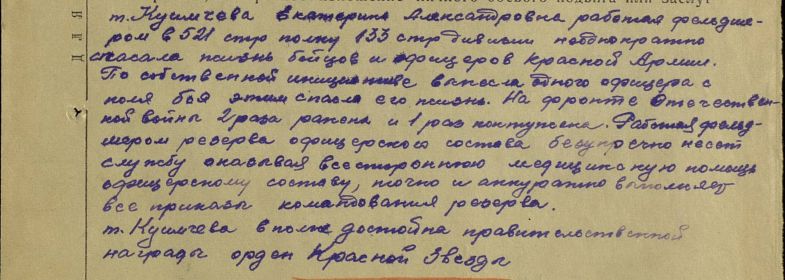 личного боевого подвига или заслуг
т. Кушчева Екатерина Александровна работая фельдше-
ром в 521 стр полку 133 стр дивизии неоднократно
спасала жизнь бойцов и офицеров Красной Армии.
По собственной инициативе вынесла одного офицера с
поля боя этим спасла его жизнь. На фронте Отечествен-
ной войны 2 раза ранена и 1 раз контужена. Работая фельд-
шером резерва офицерского состава безупречно несет
службу оказывая всестороннюю медицинскую помощь
офицерскому составу, точно и аккуратно выполняет
все приказы командования резерва.
т. Кушчева вполне достойна правительственной
награды орден Красной Звезды